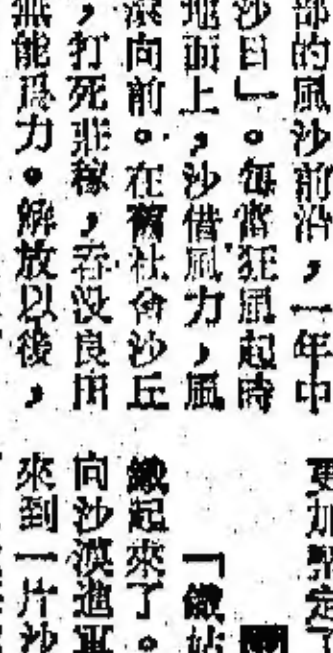 部的風沙前沿，一年中
沙日」。每當狂風起時
地面上，沙借風力，風
滾向前。在舊社會沙丘
，打死莊稼，吞没良田
無能爲力。解放以後，
更加堅定了
「鐵姑
織起來了。
向沙漠進軍
來到一片沙